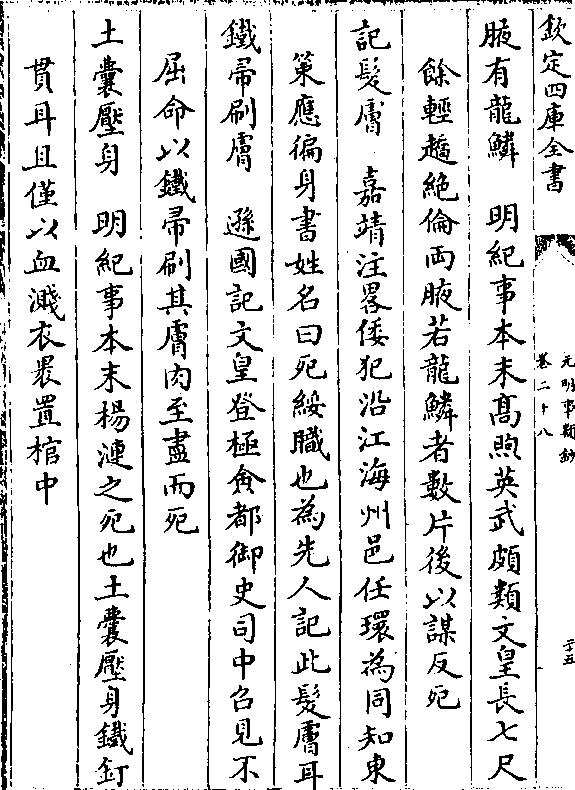 欽定四庫全書
元明事類鈔
卷二十八
二十五
腋有龍鱗　明紀事本末高煦英武頗類文皇長七尺
餘輕趫絶倫兩腋若龍鱗者數片後以謀反死
記髮膚　嘉靖注畧倭犯沿江海州邑任環為同知東
策應徧身書姓名曰死綏職也為先人記此髮膚耳
鐵帚刷膚　遜國記文皇登極僉都御史司中召見不
屈命以鐵帚刷其膚肉至盡而死
土囊壓身　明紀事本末楊漣之死也土囊壓身鐵釘
貫耳且僅以血濺衣裹置棺中